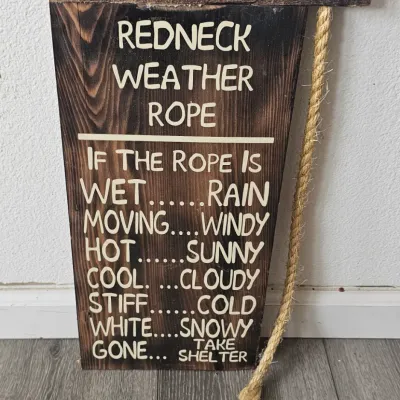 REDNECK
WEATHER
ROPE
IF THE ROPE IS
WET......RAIN
MOVING....WINDY
HOT......SUNNY
COOL. ...CLOUDY
STIFF.......COLD
WHITE....SNOWY
GONE... TAKE SHELTER